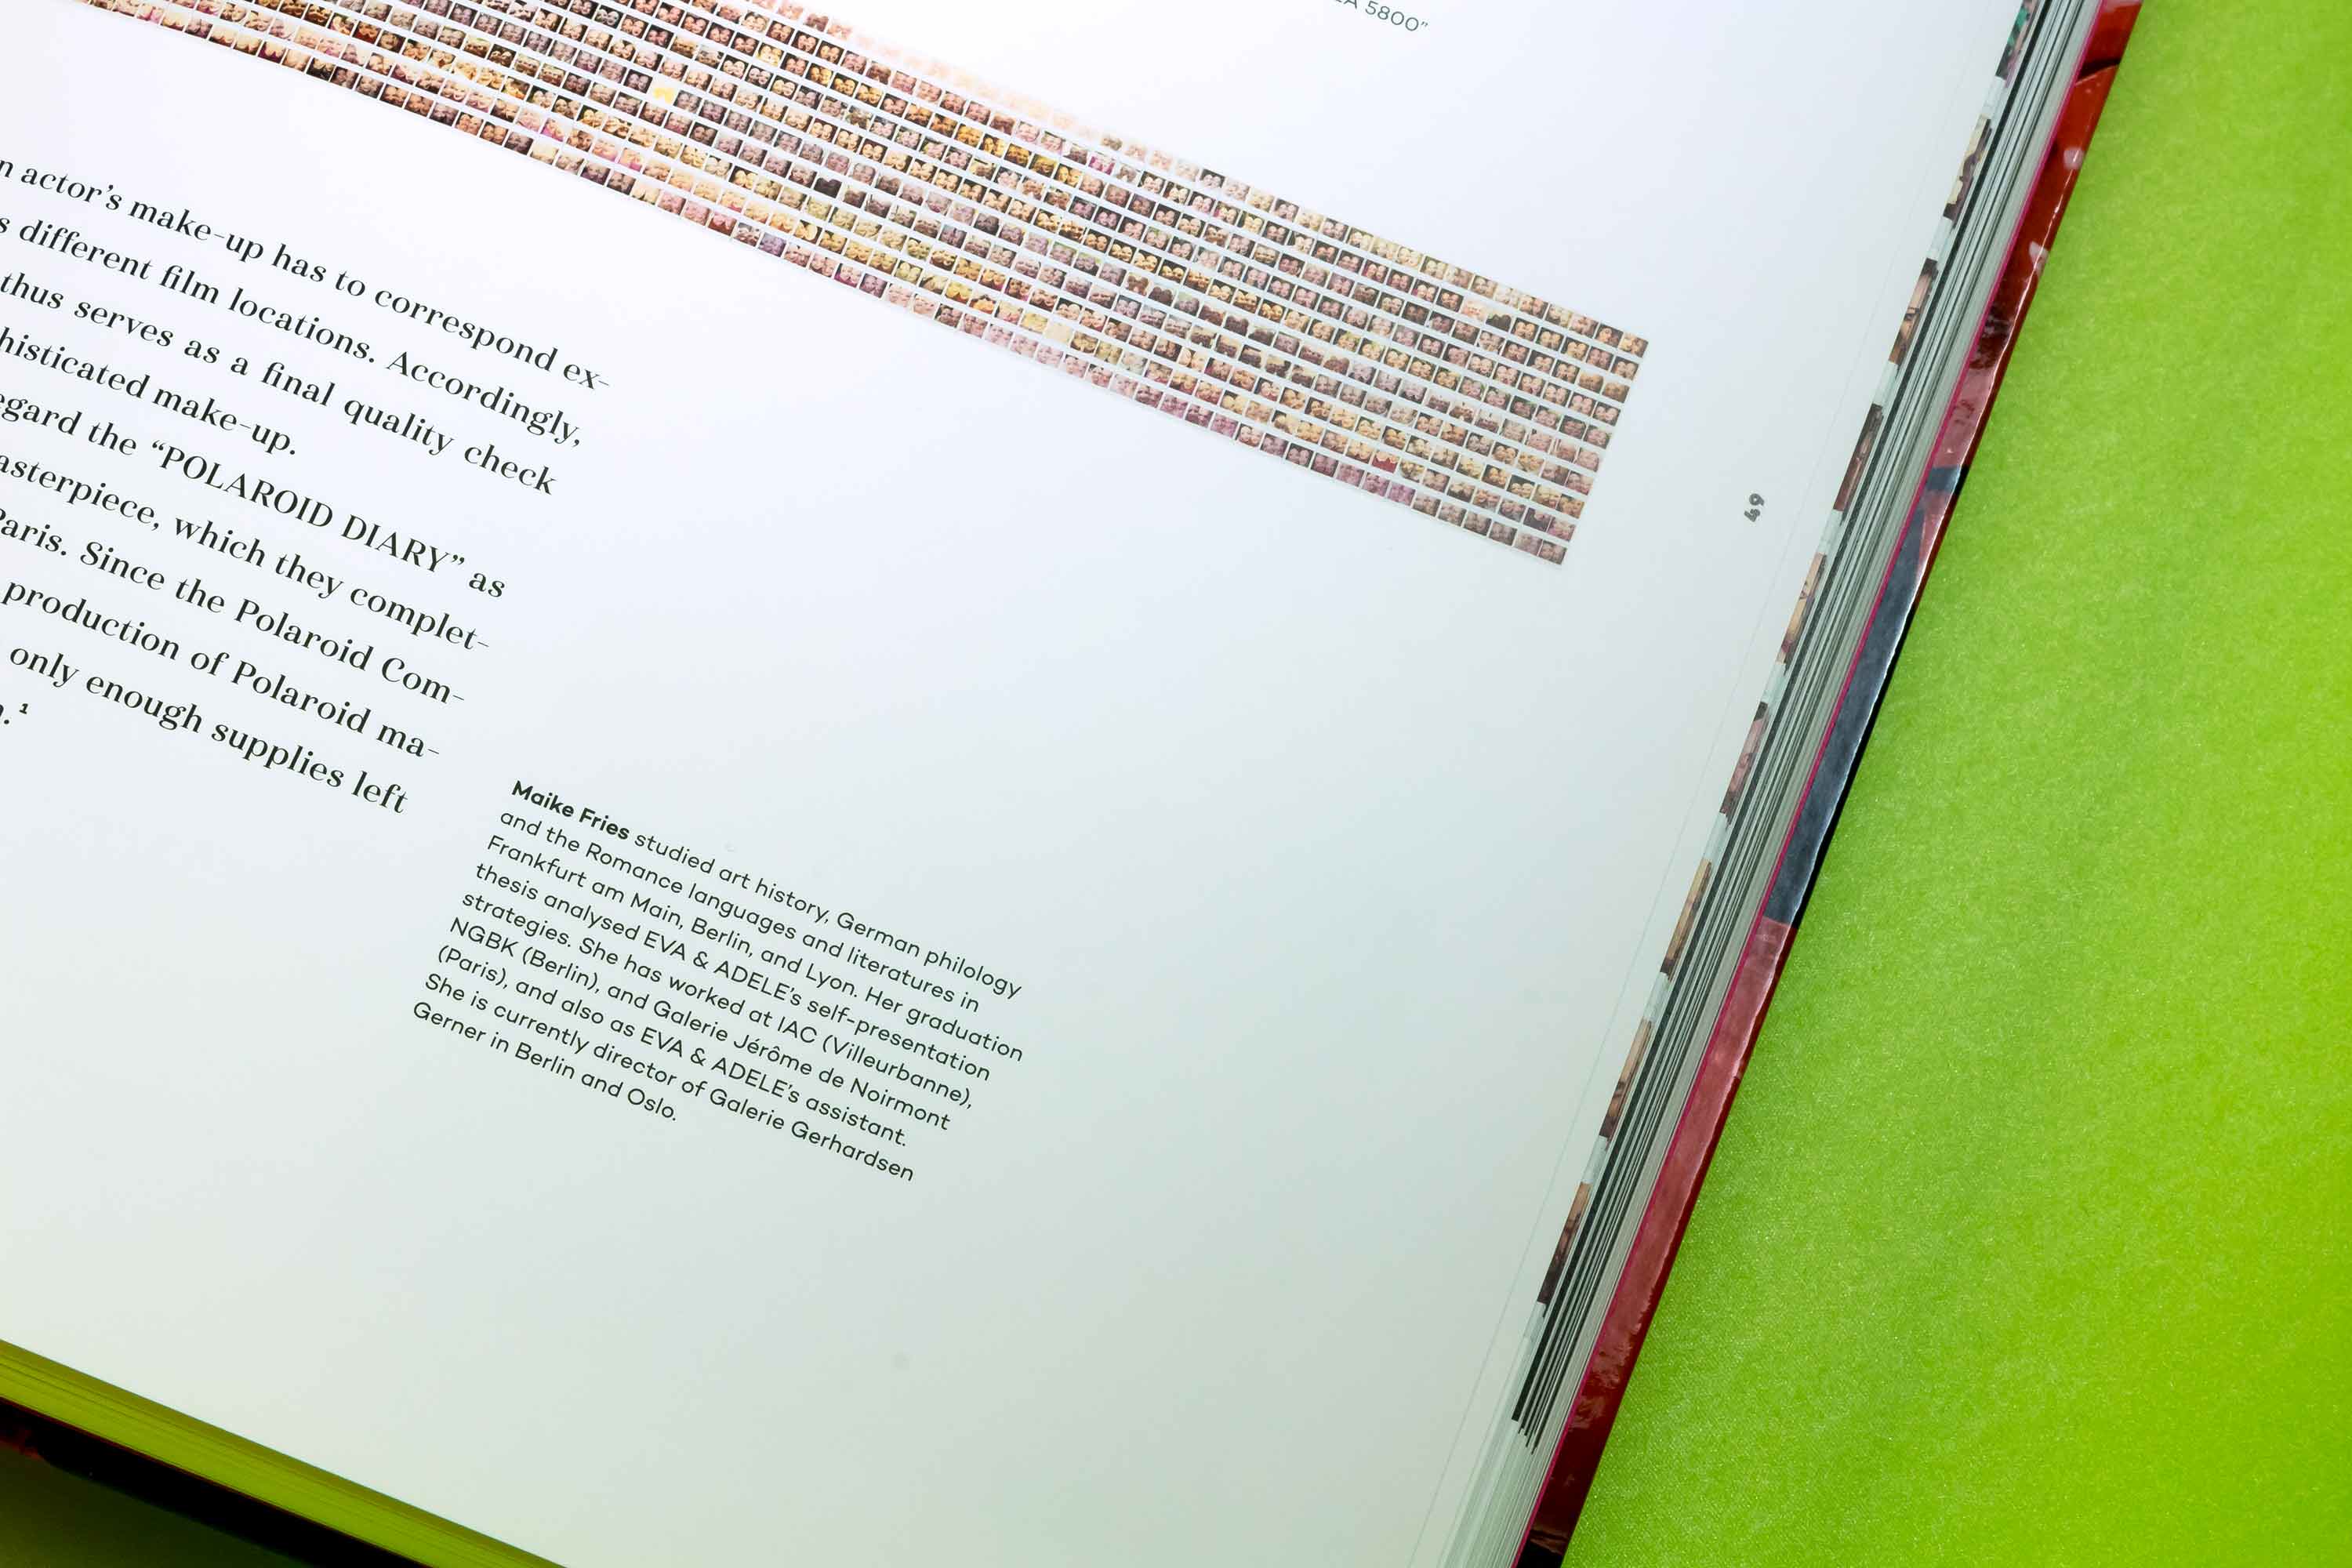 5800”
actor’s make-up has to correspond ex-
different film locations. Accordingly,
thus serves as a final quality check
make-up.
the “POLAROID DIARY” as
which they complet-
Paris. Since the Polaroid Com-
production of Polaroid ma-
only enough supplies left
.¹
49
Maike Fries studied art history, German philology
and the Romance languages and literatures in
Frankfurt am Main, Berlin, and Lyon. Her graduation
thesis analysed EVA & ADELE’s self-presentation
strategies. She has worked at IAC (Villeurbanne),
NGBK (Berlin), and Galerie Jérôme de Noirmont
(Paris), and also as EVA & ADELE’s assistant.
She is currently director of Galerie Gerhardsen
Gerner in Berlin and Oslo.